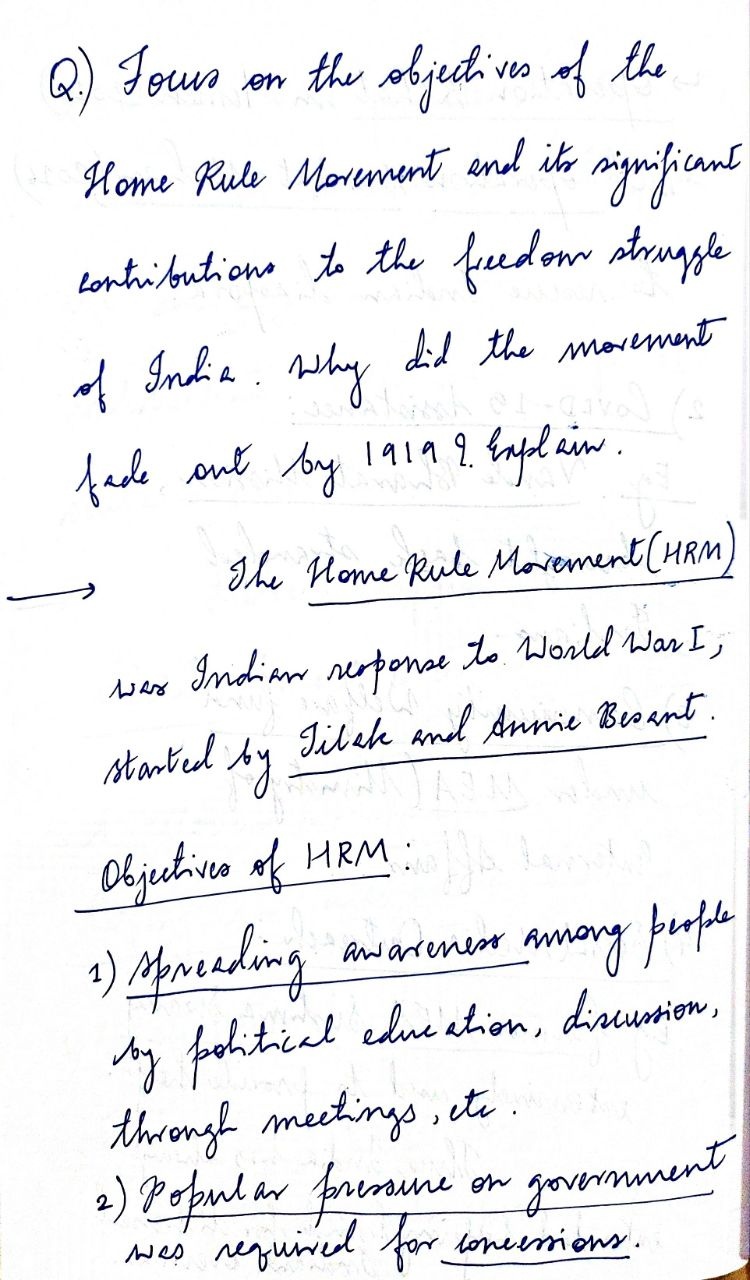 Q.) Focus on the objectives of the
Home Rule Movement and its significant
contributions to the freedom struggle
of India. Why did the movement
fade out by 1919? Explain.
→ The Home Rule Movement (HRM)
was Indian response to World War I,
started by Tilak and Annie Besant.
Objectives of HRM:
1) Spreading awareness among people
by political education, discussion,
through meetings, etc.
2) Popular pressure on government
was required for concessions.